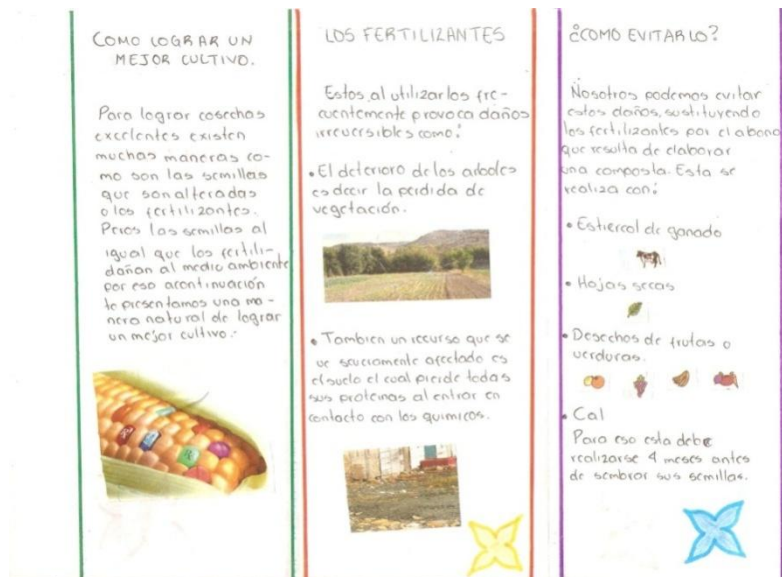 COMO LOGRAR UN
MEJOR CULTIVO.
Para lograr cosechas
excelentes existen
muchas maneras co-
mo son las semillas
que son alteradas
o los fertilizantes.
Peros las semillas al
igual que los fertili-
dañan al medio ambiente
por eso acontinuación
te presentamos una ma-
nera natural de lograr
un mejor cultivo:
LOS FERTILIZANTES
Estos, al utilizarlos fre-
cuentemente provoca daños
irreversibles como:
• El deterioro de los arboles
es decir la perdida de
vegetación.
• Tambien un recurso que se
ve seuciamente afectado es
el suelo el cual pierde todas
sus proteinas al entrar en
contacto con los quimicos.
¿COMO EVITARLO?
Nosotros podemos evitar
estos daños, sustituyendo
los fertilizantes por el abono
que resulta de elaborar
una composta. Esta se
realiza con:
• Estiercol de ganado
• Hojas secas
• Desechos de frutas o
verduras.
• Cal
Para eso esta debe
realizarse 4 meses antes
de sembrar sus semillas.